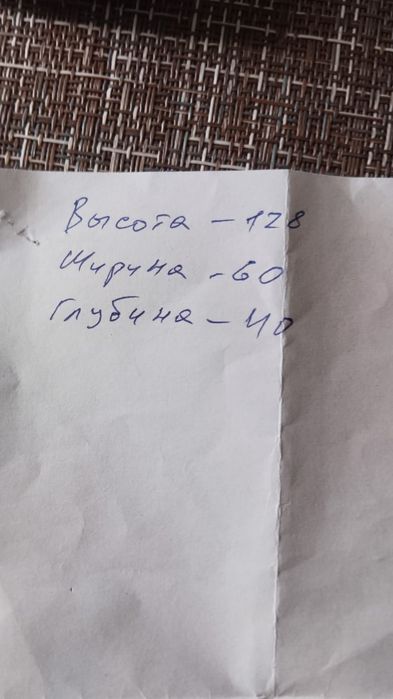 Высота - 128
Ширина - 60
Глубина - 40